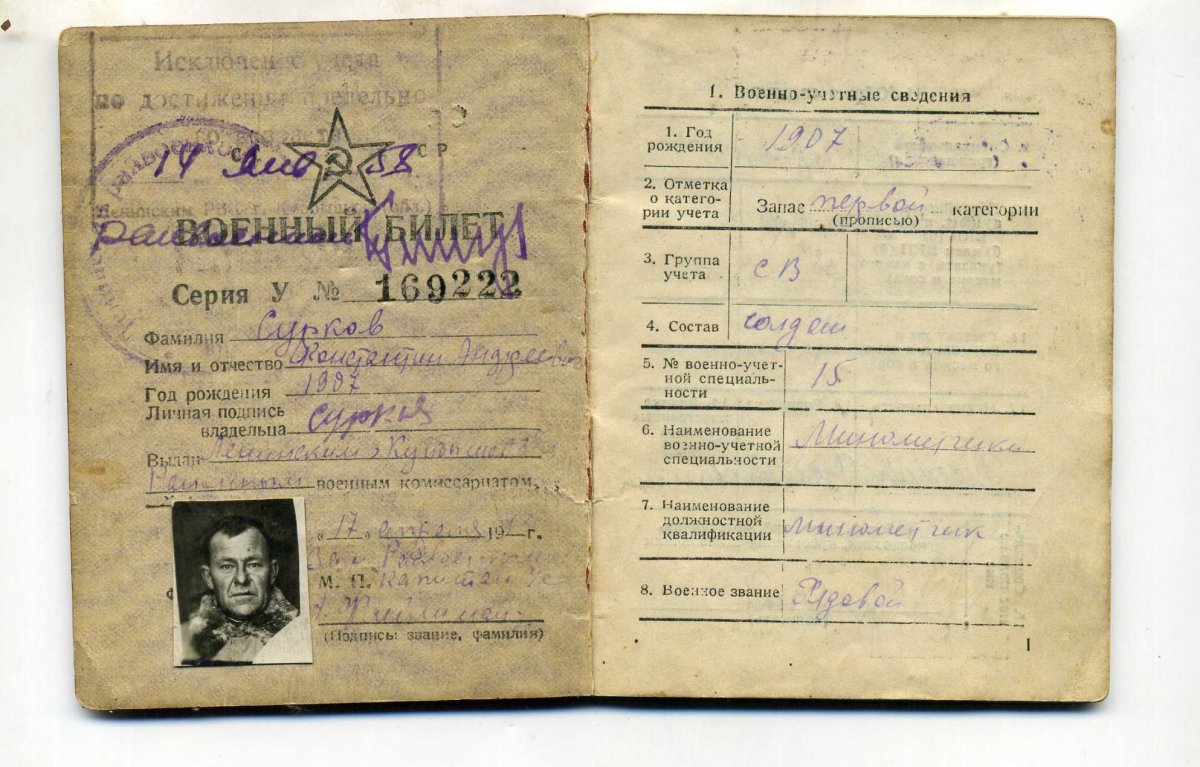 Исключен с учета
по достижении предельно
СССР
14 янв 58
ВОЕННЫЙ БИЛЕТ
Серия У № 169222
Фамилия Сурков
Имя и отчество Константин Андреевич
Год рождения 1907
Личная подпись
владельца Сурков
Выдан Ленинским г Куйбышева
военным комиссариатом
«17» апреля 19 г.
М. П. Капитан
(Подпись, звание, фамилия)
1. Военно-учетные сведения
1. Год
рождения
1907
2. Отметка
о катего-
рии учета
Запас первой категории
(прописью)
3. Группа
учета
СВ
4. Состав
солдат
5. № военно-учет-
ной специаль-
ности
15
6. Наименование
военно-учетной
специальности
Минометчики
7. Наименование
должностной
квалификации
минометчик
8. Военное звание
Рядовой
1